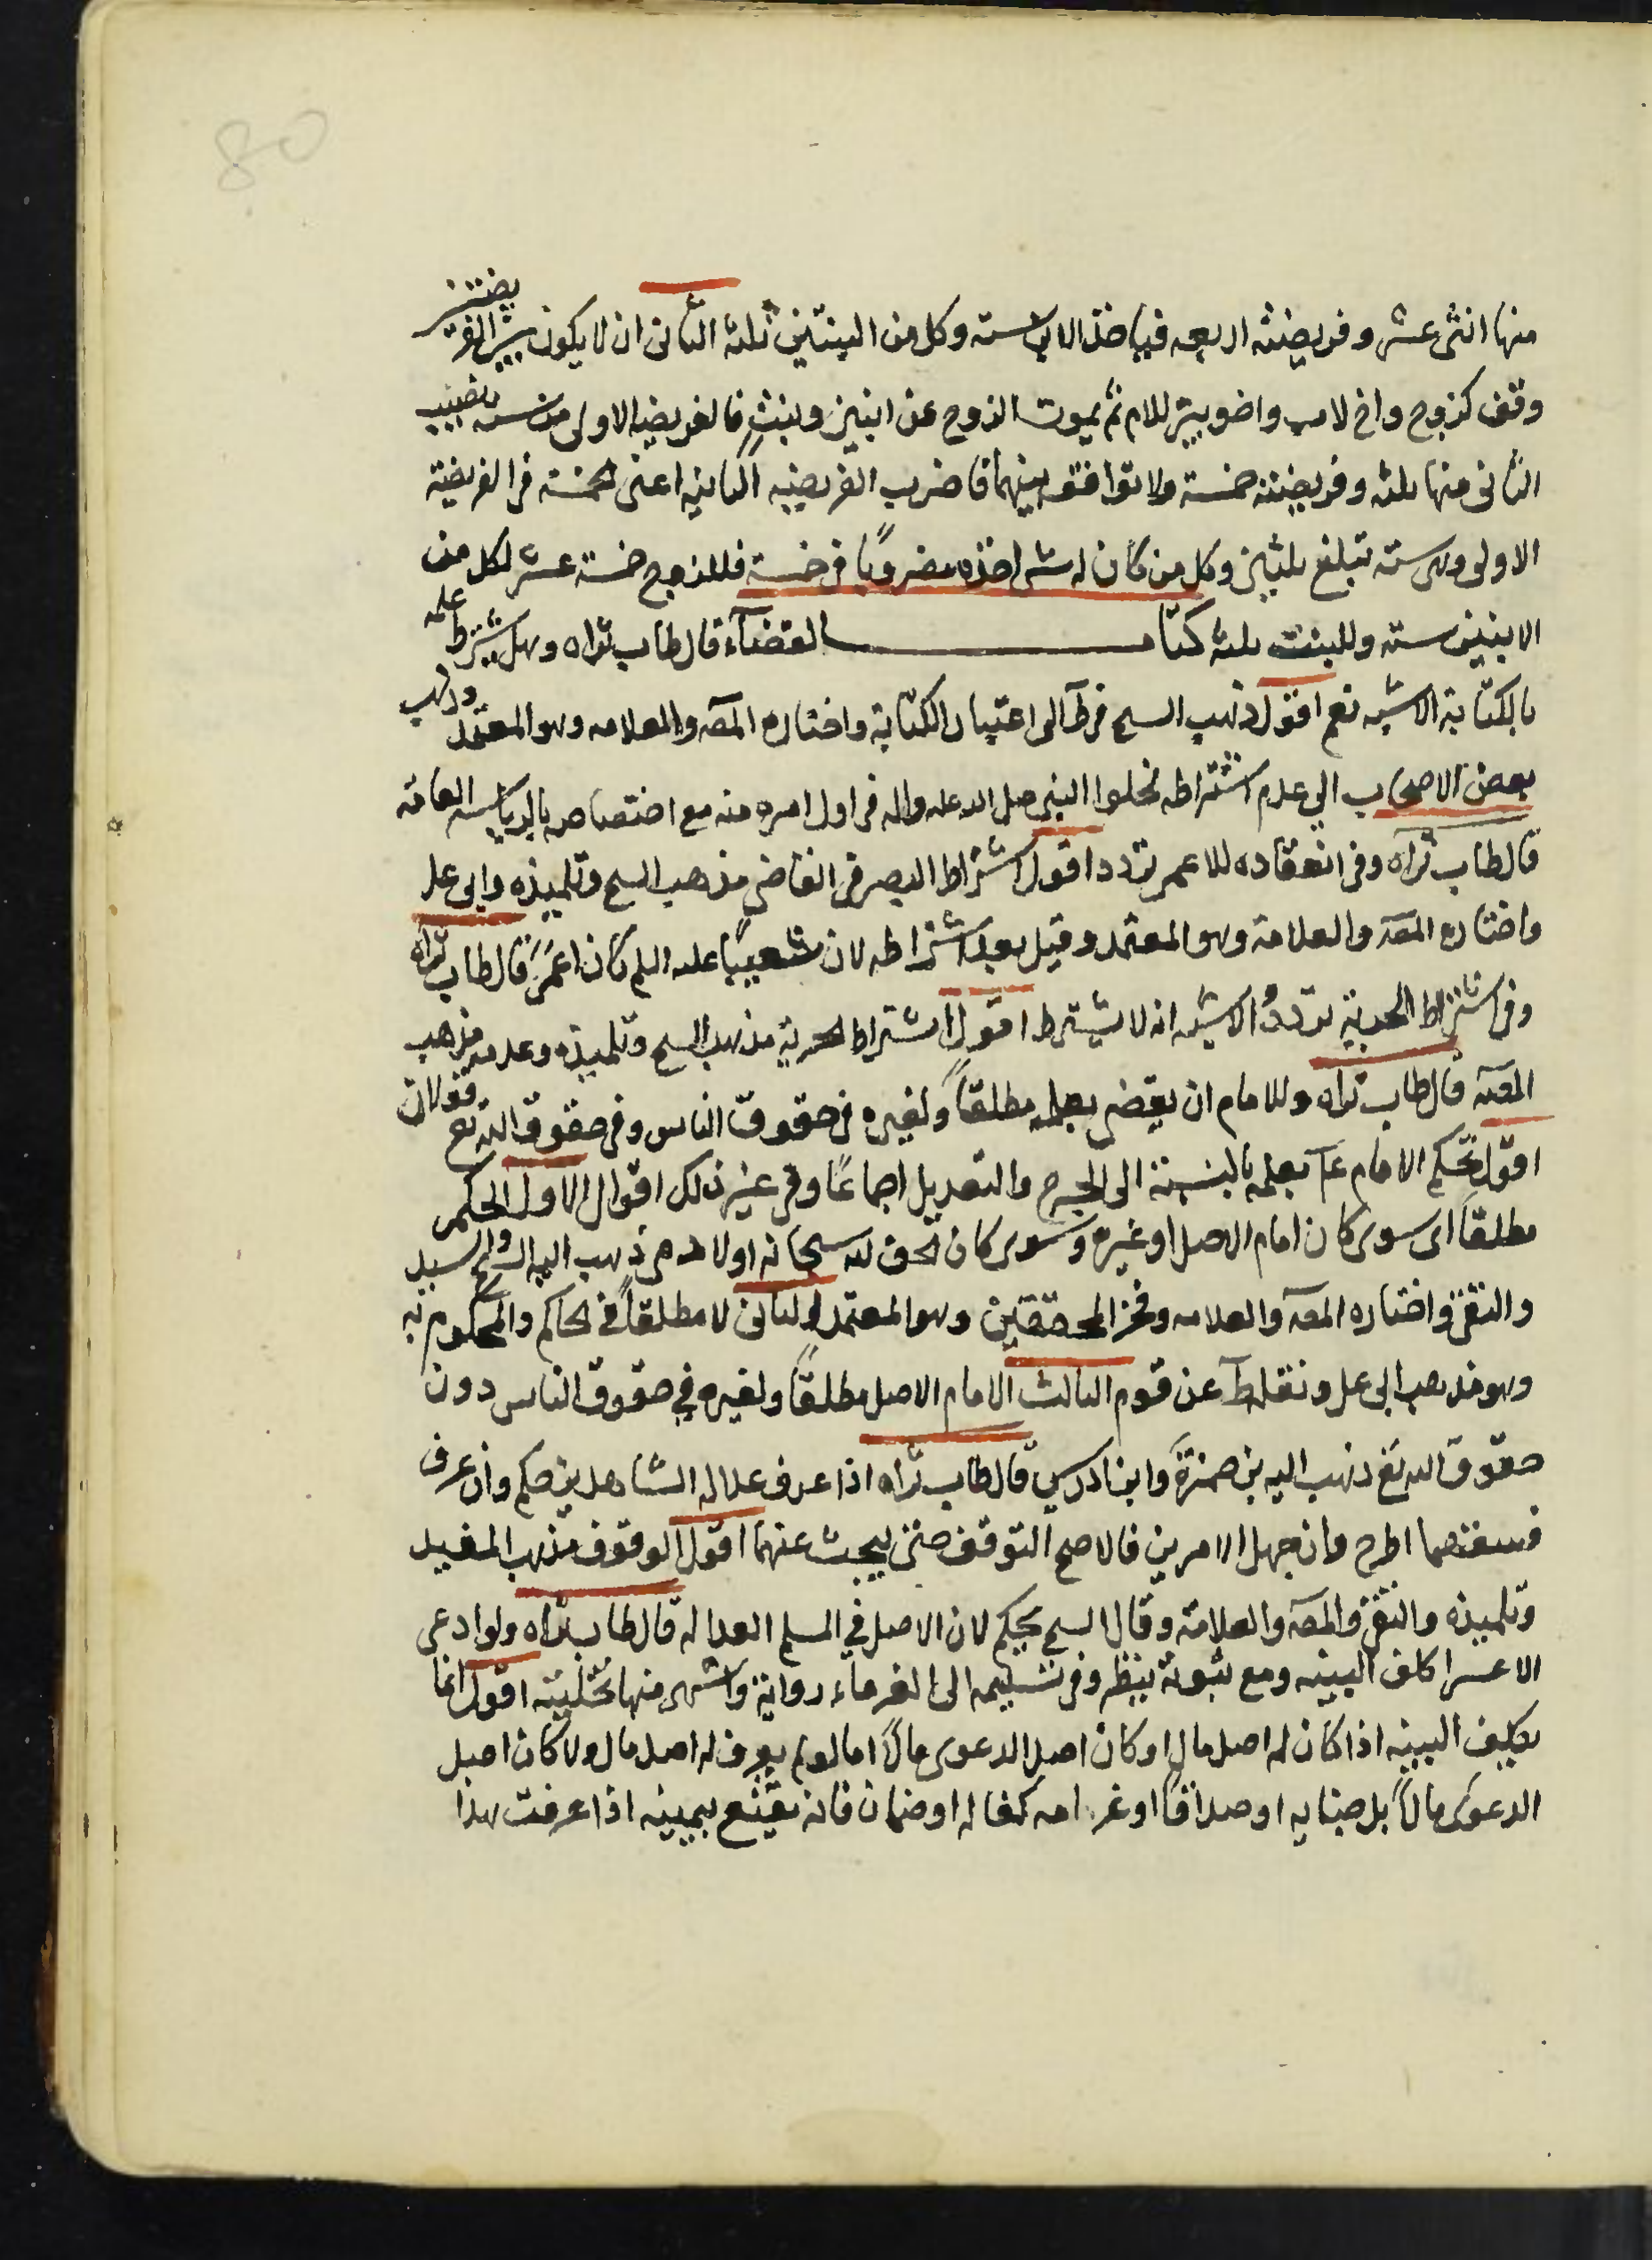 80
منها اثنى عشر وفريضته اربعه فياخذ الابن سته وكل من البنتين ثلثه الثانى ان لا يكون بين الفريضتين
وفق كزوج واخ لاب واخوين للام ثم يموت الزوج عن ابنين وبنت فالفريضه الاولى من سته نصيب
الثانى منها ثلثه وفريضته خمسة ولا توافق بينهما فاضرب الفريضه الثانيه اعنى الخمسه فى الفريضة
الاولى وهى سته تبلغ ثلثين وكل من كان له شئ اخذه مضروبا فى خمسة فللزوج خمسة عشر لكل من
الابنين سته وللبنت ثلثه كتاب القضآء قال طاب ثراه وهل يشترط علمه
بالكتابة الاشبه نعم اقول ذهب الشيخ فى ط الى اعتبار الكتابة واختاره المصه والعلامه وهو المعتمد وذهب
بعض الاصحاب الى عدم اشتراطه لخلو النبى صلى الله عليه واله فى اول امره منه مع اختصاصه بالرياسه العامة
قال طاب ثراه وفى انعقاده للاعمى تردد اقول اشتراط البصر فى القاضى مذهب الشيخ وتلميذه وابى على
واختاره المصه والعلامة وهو المعتمد وقيل بعدم اشتراطه لان شعيبا عليه السلم كان اعمى قال طاب ثراه
وفى اشتراط الحرية تردد الاشبه انه لا يشترط اقول اشتراط الحرية مذهب الشيخ وتلميذه وعدمه مذهب
المصه قال طاب ثراه وللامام ان يقضى بعلمه مطلقا ولغيره فى حقوق الناس وفى حقوق الله تع قولان
اقول يحكم الامام عآ بعلمه بالنسبة الى الجرح والتعديل اجماعا وفى غير ذلك اقوال الاول الحكم
مطلقا اى سوى كان امام الاصل او غيره وسوى كان الحق لله سبحانه اولادمى ذهب اليه الشيخ والسيد
والتقى واختاره المصه والعلامه وفخر المحققين وهو المعتمد الثانى لا مطلقا فى الحاكم والمحكوم به
وهو مذهب ابى على ونقله ط عن قوم الثالث الامام الاصل مطلقا ولغيره فى حقوق الناس دون
حقوق الله تع ذهب اليه بن حمزة وابن ادريس قال طاب ثراه اذا عرف عداله الشاهدين حكم وان عرف
فسقهما اطرح وان جهل الامرين فالاصح التوقف حتى يبحث عنهما اقول الوقوف مذهب المفيد
وتلميذه والتقى والمصه والعلامة وقال الشيخ يحكم لان الاصل فى المسلم العداله قال طاب ثراه ولو ادعى
الاعسار كلف البينه ومع ثبوته ينظر وفى تسليمه الى الغرماء رواية واشهر منها تخليته اقول انما
يكلف البينه اذا كان له اصل مال او كان اصل الدعوى مالا اما لو لم يعرف له اصل مال ولا كان اصل
الدعوى مالا بل جنايه او صداقا او غرامه كفاله او ضمان فانه يقنع بيمينه اذا عرفت هذا